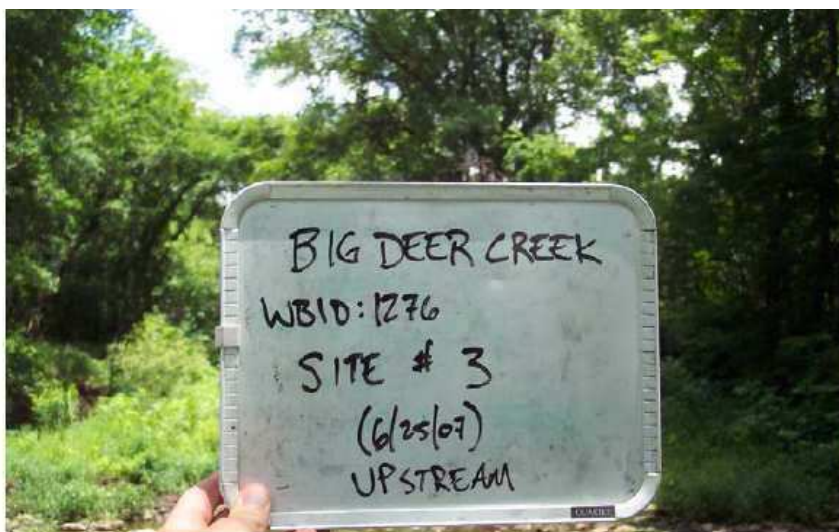 BIG DEER CREEK
WBID: 1276
SITE # 3
(6/25/07)
UPSTREAM
QUARTET